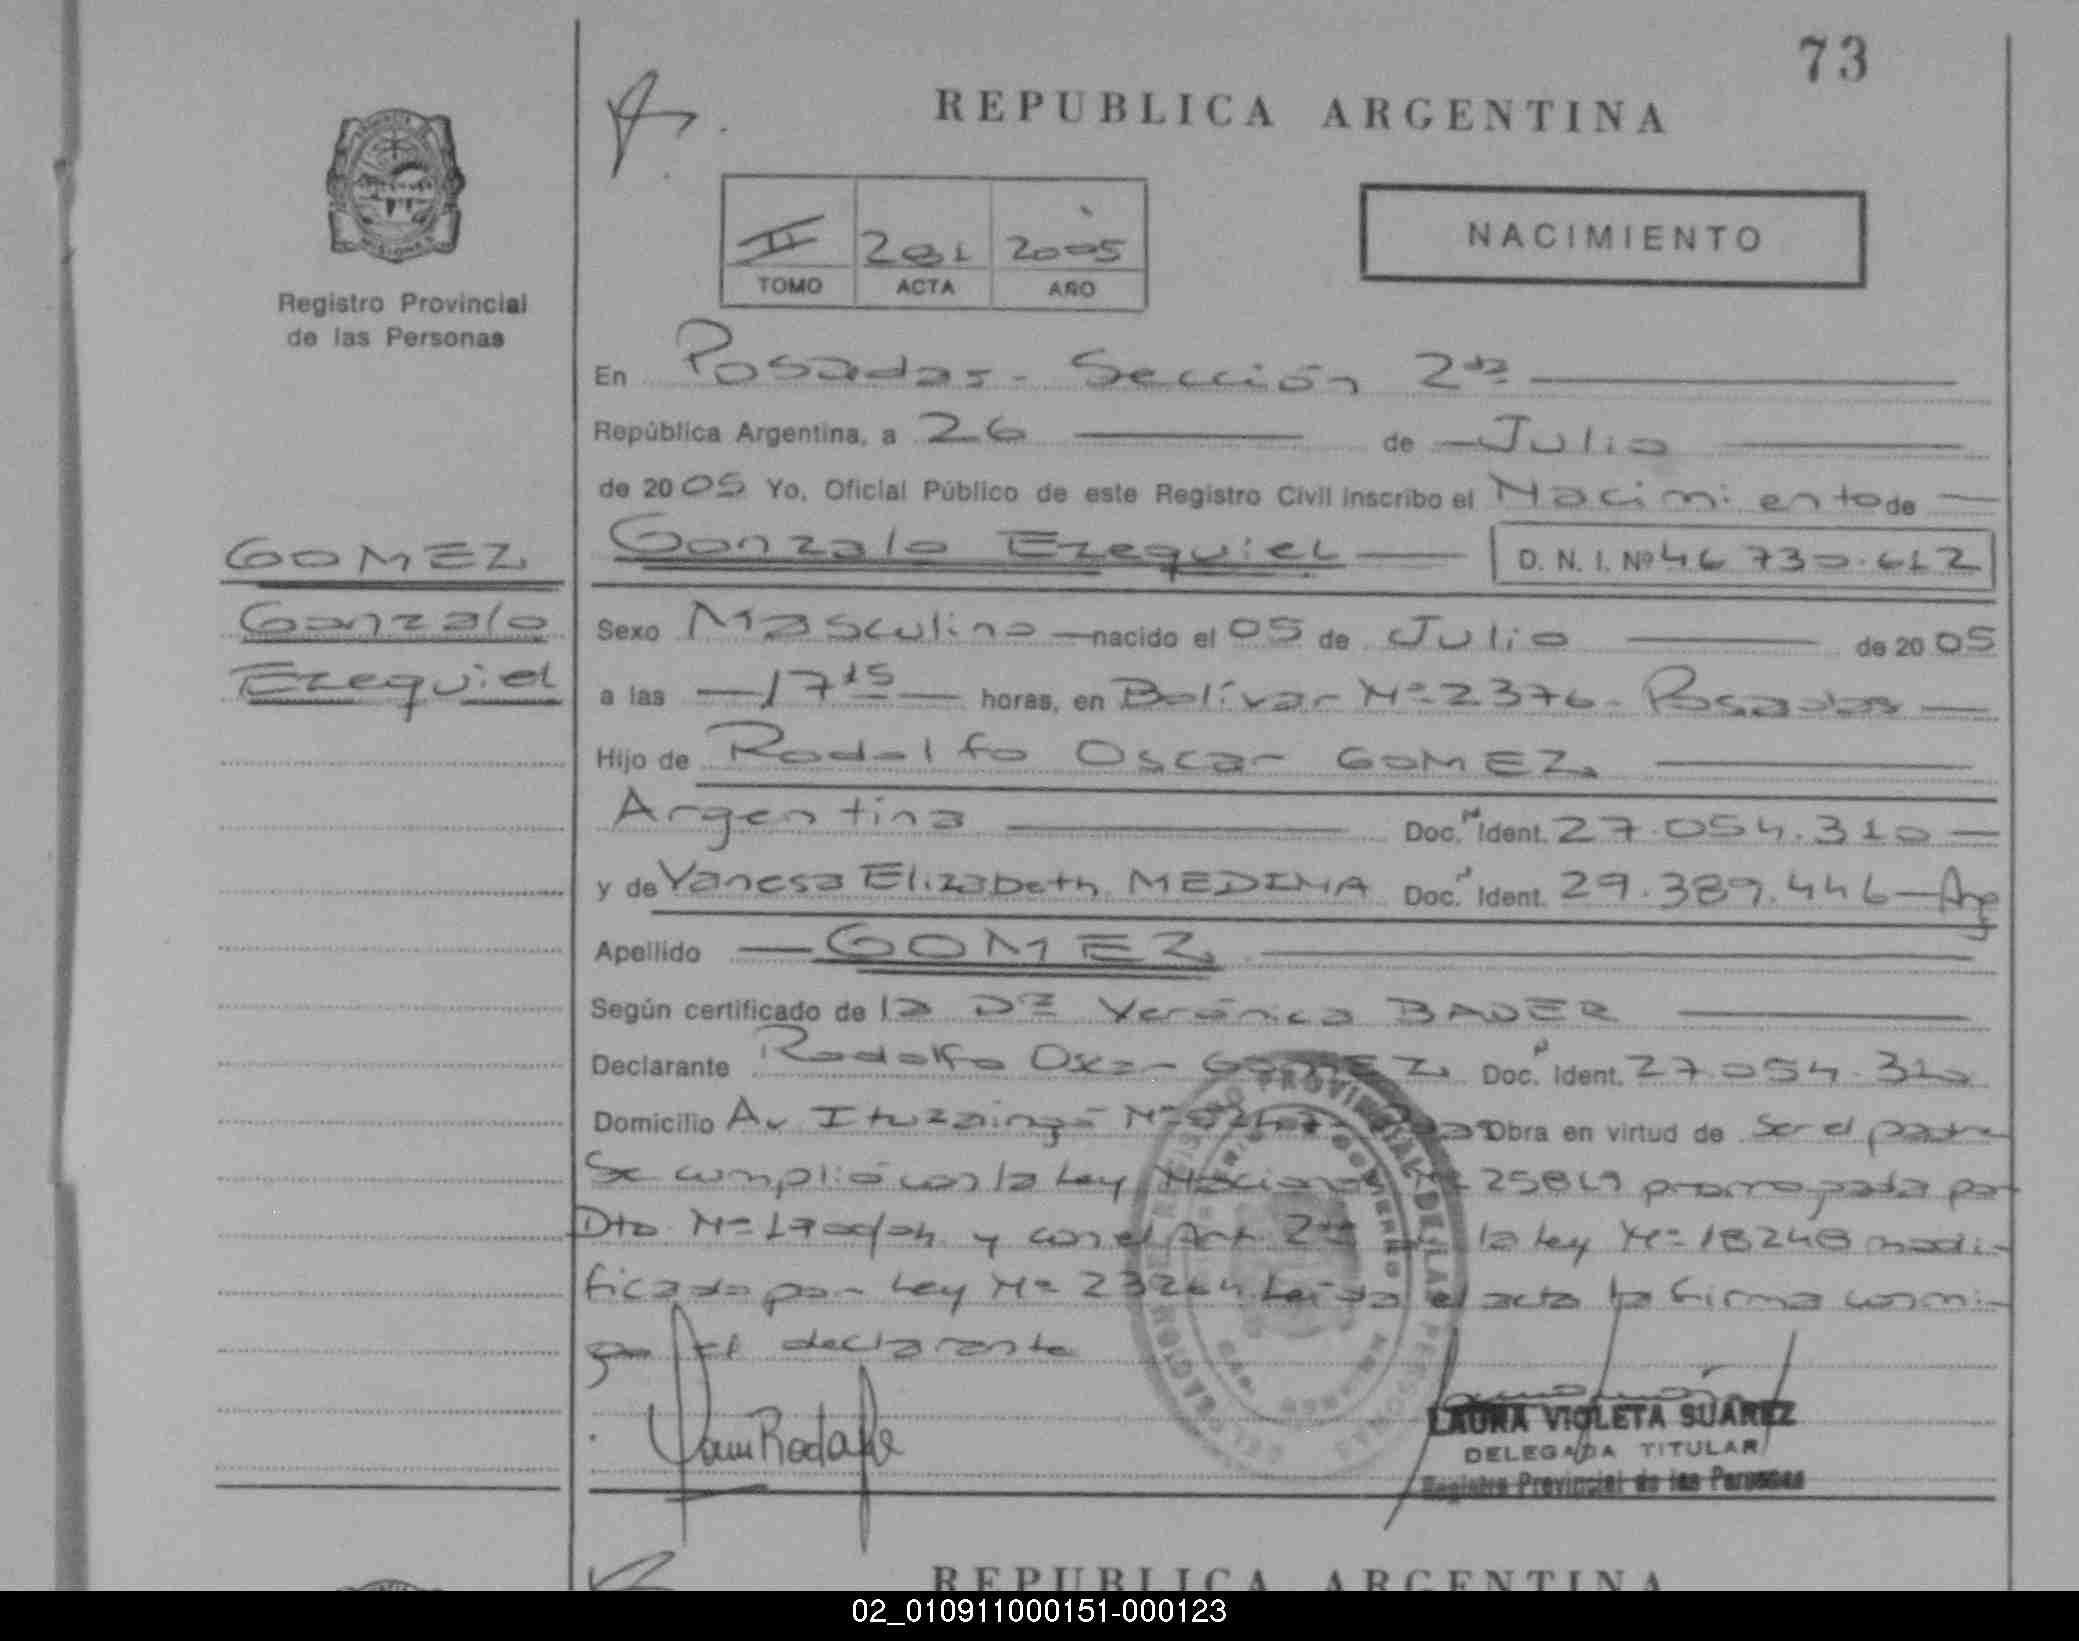 73
REPUBLICA ARGENTINA
Registro Provincial
de las Personas
II 281 2005
TOMO ACTA AÑO
NACIMIENTO
En Posadas - Sección 2da
República Argentina, a 26 de Julio
de 2005 Yo, Oficial Público de este Registro Civil inscribo el Nacimiento de
GOMEZ
Gonzalo
Ezequiel
Gonzalo Ezequiel D. N. I. Nº 46.730.612
Sexo Masculino nacido el 05 de Julio de 2005
a las 17 15 horas, en Bolívar Nº 2376 - Posadas
Hijo de Rodolfo Oscar GOMEZ
Argentina Doc. N Ident. 27.054.310
y de Vanesa Elizabeth MEDINA Doc. N Ident. 29.389.446 - Arg
Apellido GOMEZ
Según certificado de la Dra Verónica BAUER
Declarante Rodolfo Oscar GOMEZ Doc. N Ident. 27.054.310
Domicilio Av Ituzaingó Nº Obra en virtud de ser el padre
Se cumplió con la Ley Nacional Nº 25819 prorrogada por
Dto Nº 1700/04 y con el Art. 2do la Ley Nº 18248 modi-
ficado por Ley Nº 23264 Leída el acta la firma conmi-
go el declarante
REGISTRO PROVINCIAL DE LAS PERSONAS
LAURA VIOLETA SUAREZ
DELEGADA TITULAR
Registro Provincial de las Personas
REPUBLICA ARGENTINA
02_010911000151-000123